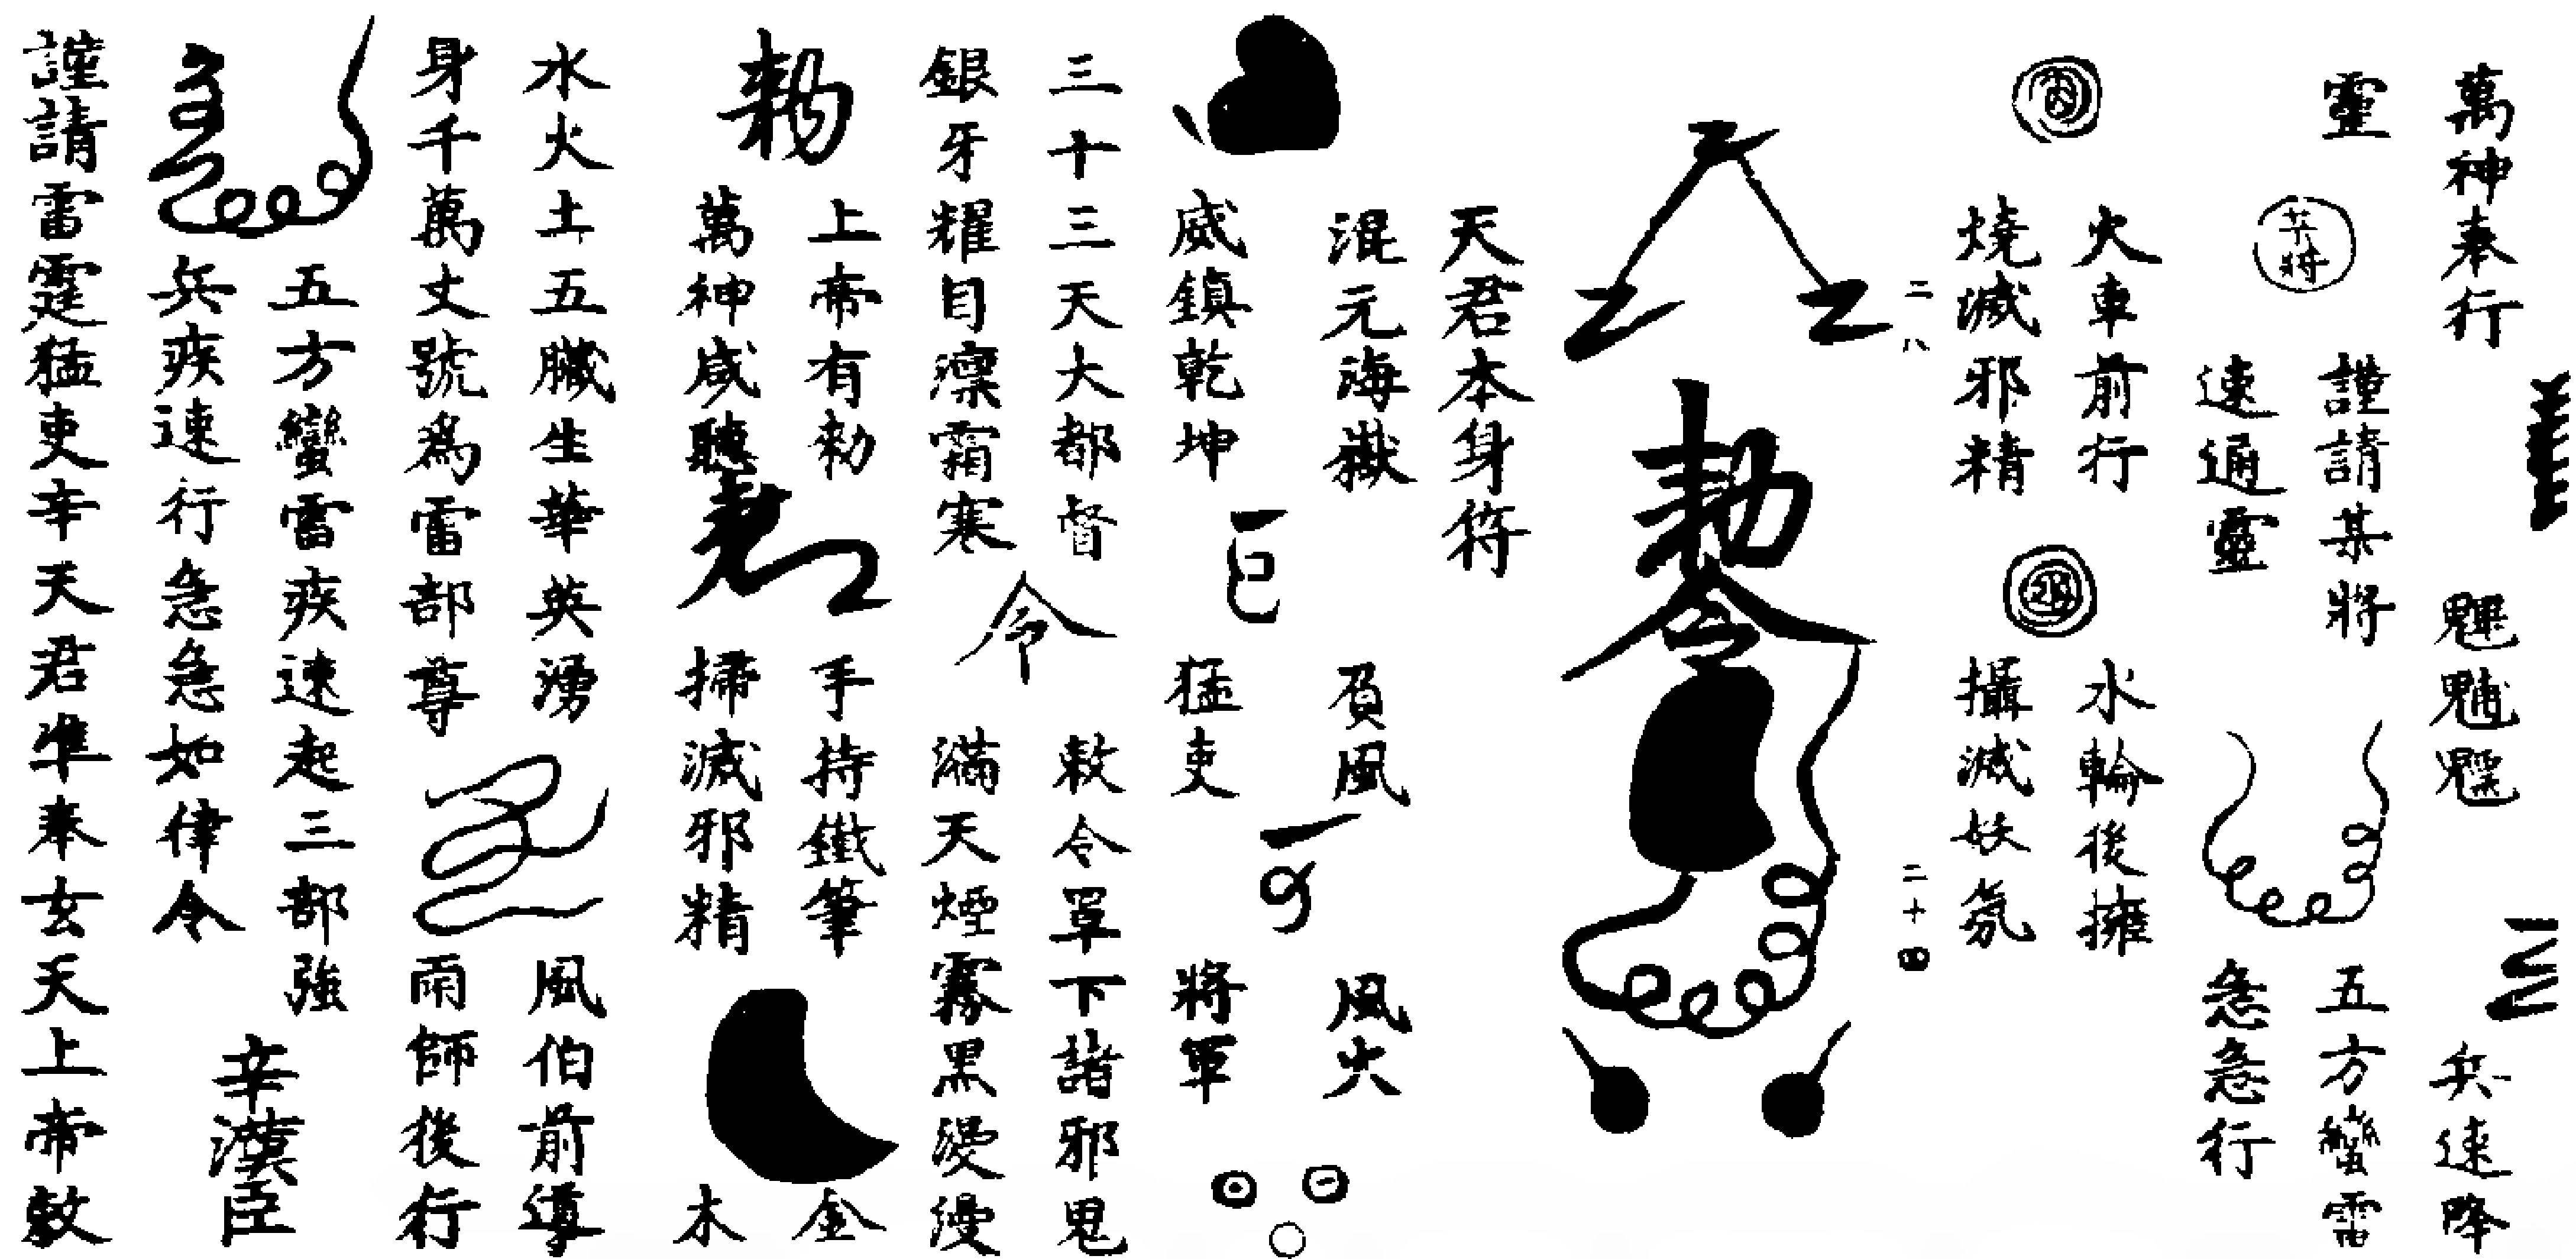 萬神奉行
魓魒魕
兵速降
靈
謹請某將
五方蠻雷
速通靈
急急行
火車前行
燒滅邪精
水輪後擁
攝滅妖氛
二八
二十四
勅令
天君本身符
混元海嶽
負風
風火
威鎮乾坤
猛吏
將軍
三十三天大都督
敕令罩下諸邪鬼
銀牙耀目凜霜寒
滿天煙霧黑漫漫
令
勅
上帝有勅
萬神咸聽
手持鐵筆
掃滅邪精
金
木
水火土五臟生華英湧
風伯前導
身千萬丈號為雷部尊
雨師後行
五方蠻雷疾速起三部強
兵疾速行急急如律令
辛漢臣
謹請雷霆猛吏辛天君準奉玄天上帝敕